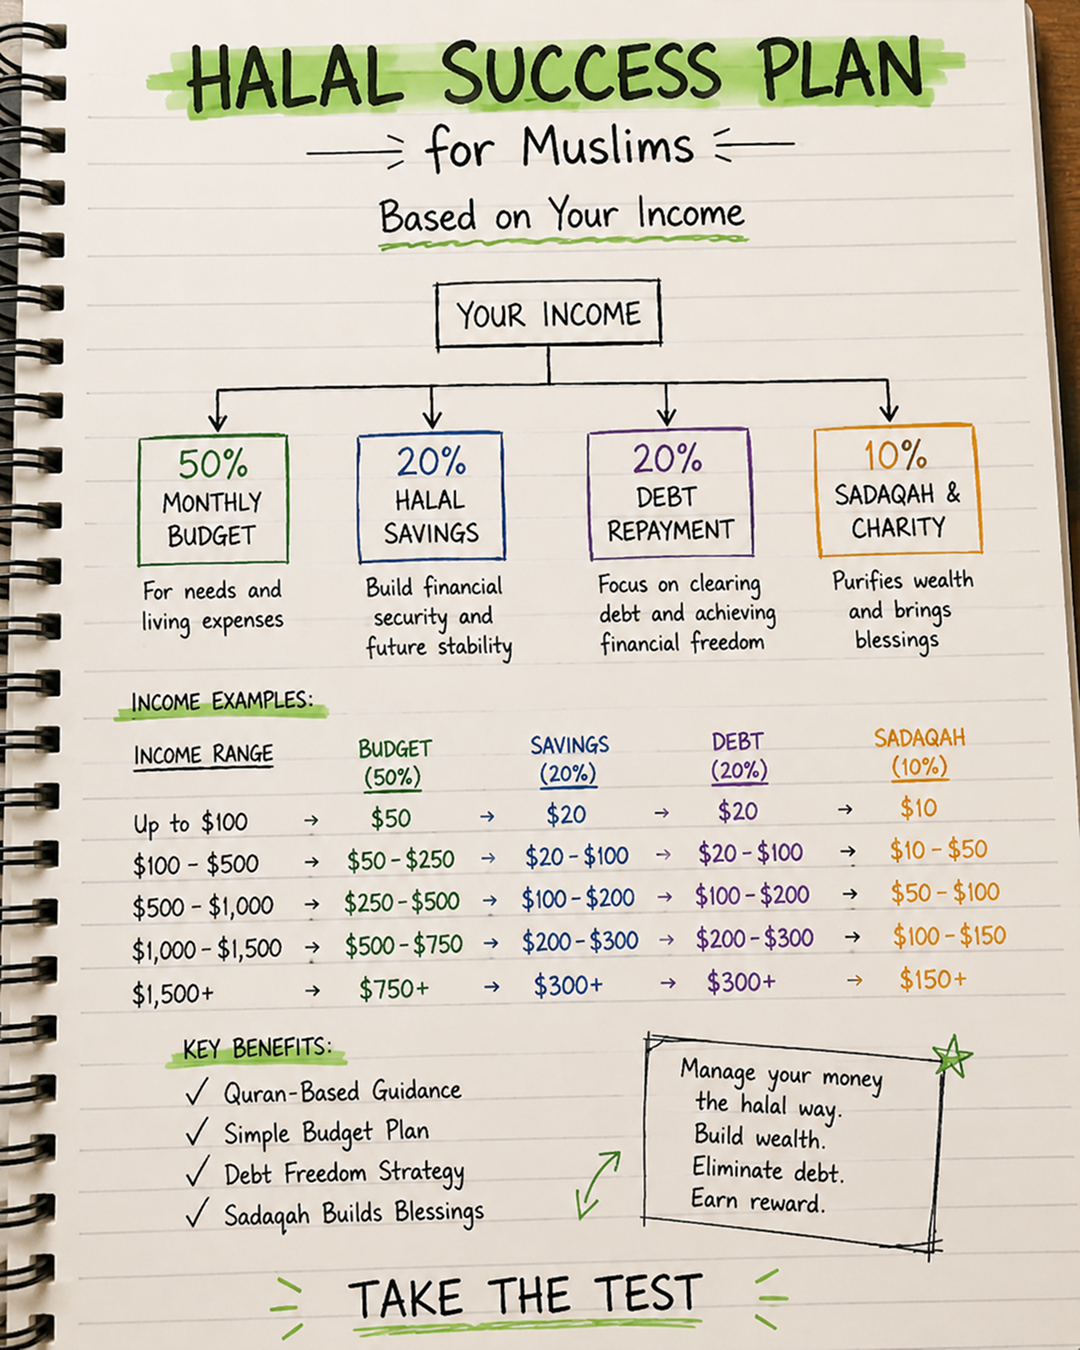 HALAL SUCCESS PLAN
for Muslims
Based on Your Income
YOUR INCOME
50%
MONTHLY
BUDGET
For needs and
living expenses
20%
HALAL
SAVINGS
Build financial
security and
future stability
20%
DEBT
REPAYMENT
Focus on clearing
debt and achieving
financial freedom
10%
SADAQAH &
CHARITY
Purifies wealth
and brings
blessings
INCOME EXAMPLES:
INCOME RANGE BUDGET (50%) SAVINGS (20%) DEBT (20%) SADAQAH (10%)
Up to $100 → $50 → $20 → $20 → $10
$100 - $500 → $50 - $250 → $20 - $100 → $20 - $100 → $10 - $50
$500 - $1,000 → $250 - $500 → $100 - $200 → $100 - $200 → $50 - $100
$1,000 - $1,500 → $500 - $750 → $200 - $300 → $200 - $300 → $100 - $150
$1,500+ → $750+ → $300+ → $300+ → $150+
KEY BENEFITS:
✓ Quran-Based Guidance
✓ Simple Budget Plan
✓ Debt Freedom Strategy
✓ Sadaqah Builds Blessings
Manage your money
the halal way.
Build wealth.
Eliminate debt.
Earn reward.
TAKE THE TEST